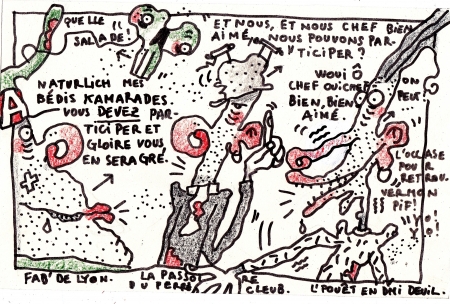 QUELLE
SALADE!
ET NOUS, ET NOUS CHEF BIEN
AIMÉ, NOUS POUVONS PAR-
TICIPER?
NATURLICH MES
BÉDIS KAMARADES.
VOUS DEVEZ PAR-
TICIPER ET
GLOIRE VOUS
EN SERA GRÉ.
A
WOUI Ô
CHEF OUICHE
BIEN, BIEN
AIMÉ.
ON
PEUT
L'OCCASE
POUR
RETROU-
VER MON
PIF!
YO!
YO!
FAB' DE LYON.
LA PASSO
DU PERE
CLEUB.
L'POUËT EN DMI DEUIL.